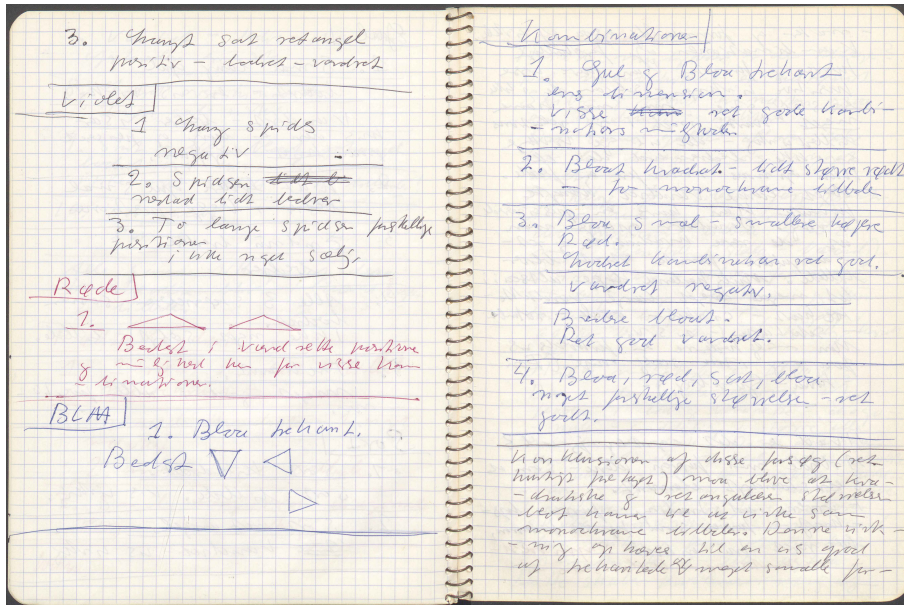 3. Langt sort retangel
positiv - lodret - vandret
Violet
1 Lang spids
negativ
2. Spidsen
nedad lidt bedre
3. To lange spidser forskellige
positioner
ikke noget særlig
Røde
1.
Bedst i vandrette positioner
og mulighed her for visse kom
- binationer.
BLAA
1. Blaa trekant.
Bedst
Kombinationer
1. Gul og Blaa trekant
ens dimension.
Visse ret gode kombi-
- nations muligheder
2. Blaat kvadrat - lidt større rødt
- to monochrome billeder
3. Blaa smal - smallere højere
Rød.
Lodret kombination ret god.
Vandret negativ.
Bredere blaat.
Ret god vandret.
4. Blaa, rød, sort, blaa
noget forskellige størrelser - ret
godt.
Konklusionen af disse forsøg (ret
hurtigt foretaget) maa blive at kva-
- dratiske og retangulære størrelser
blot kommer til at virke som
monochrome billeder. Denne virk-
- ning ophæves til en vis grad
af trekantede og meget smalle for-